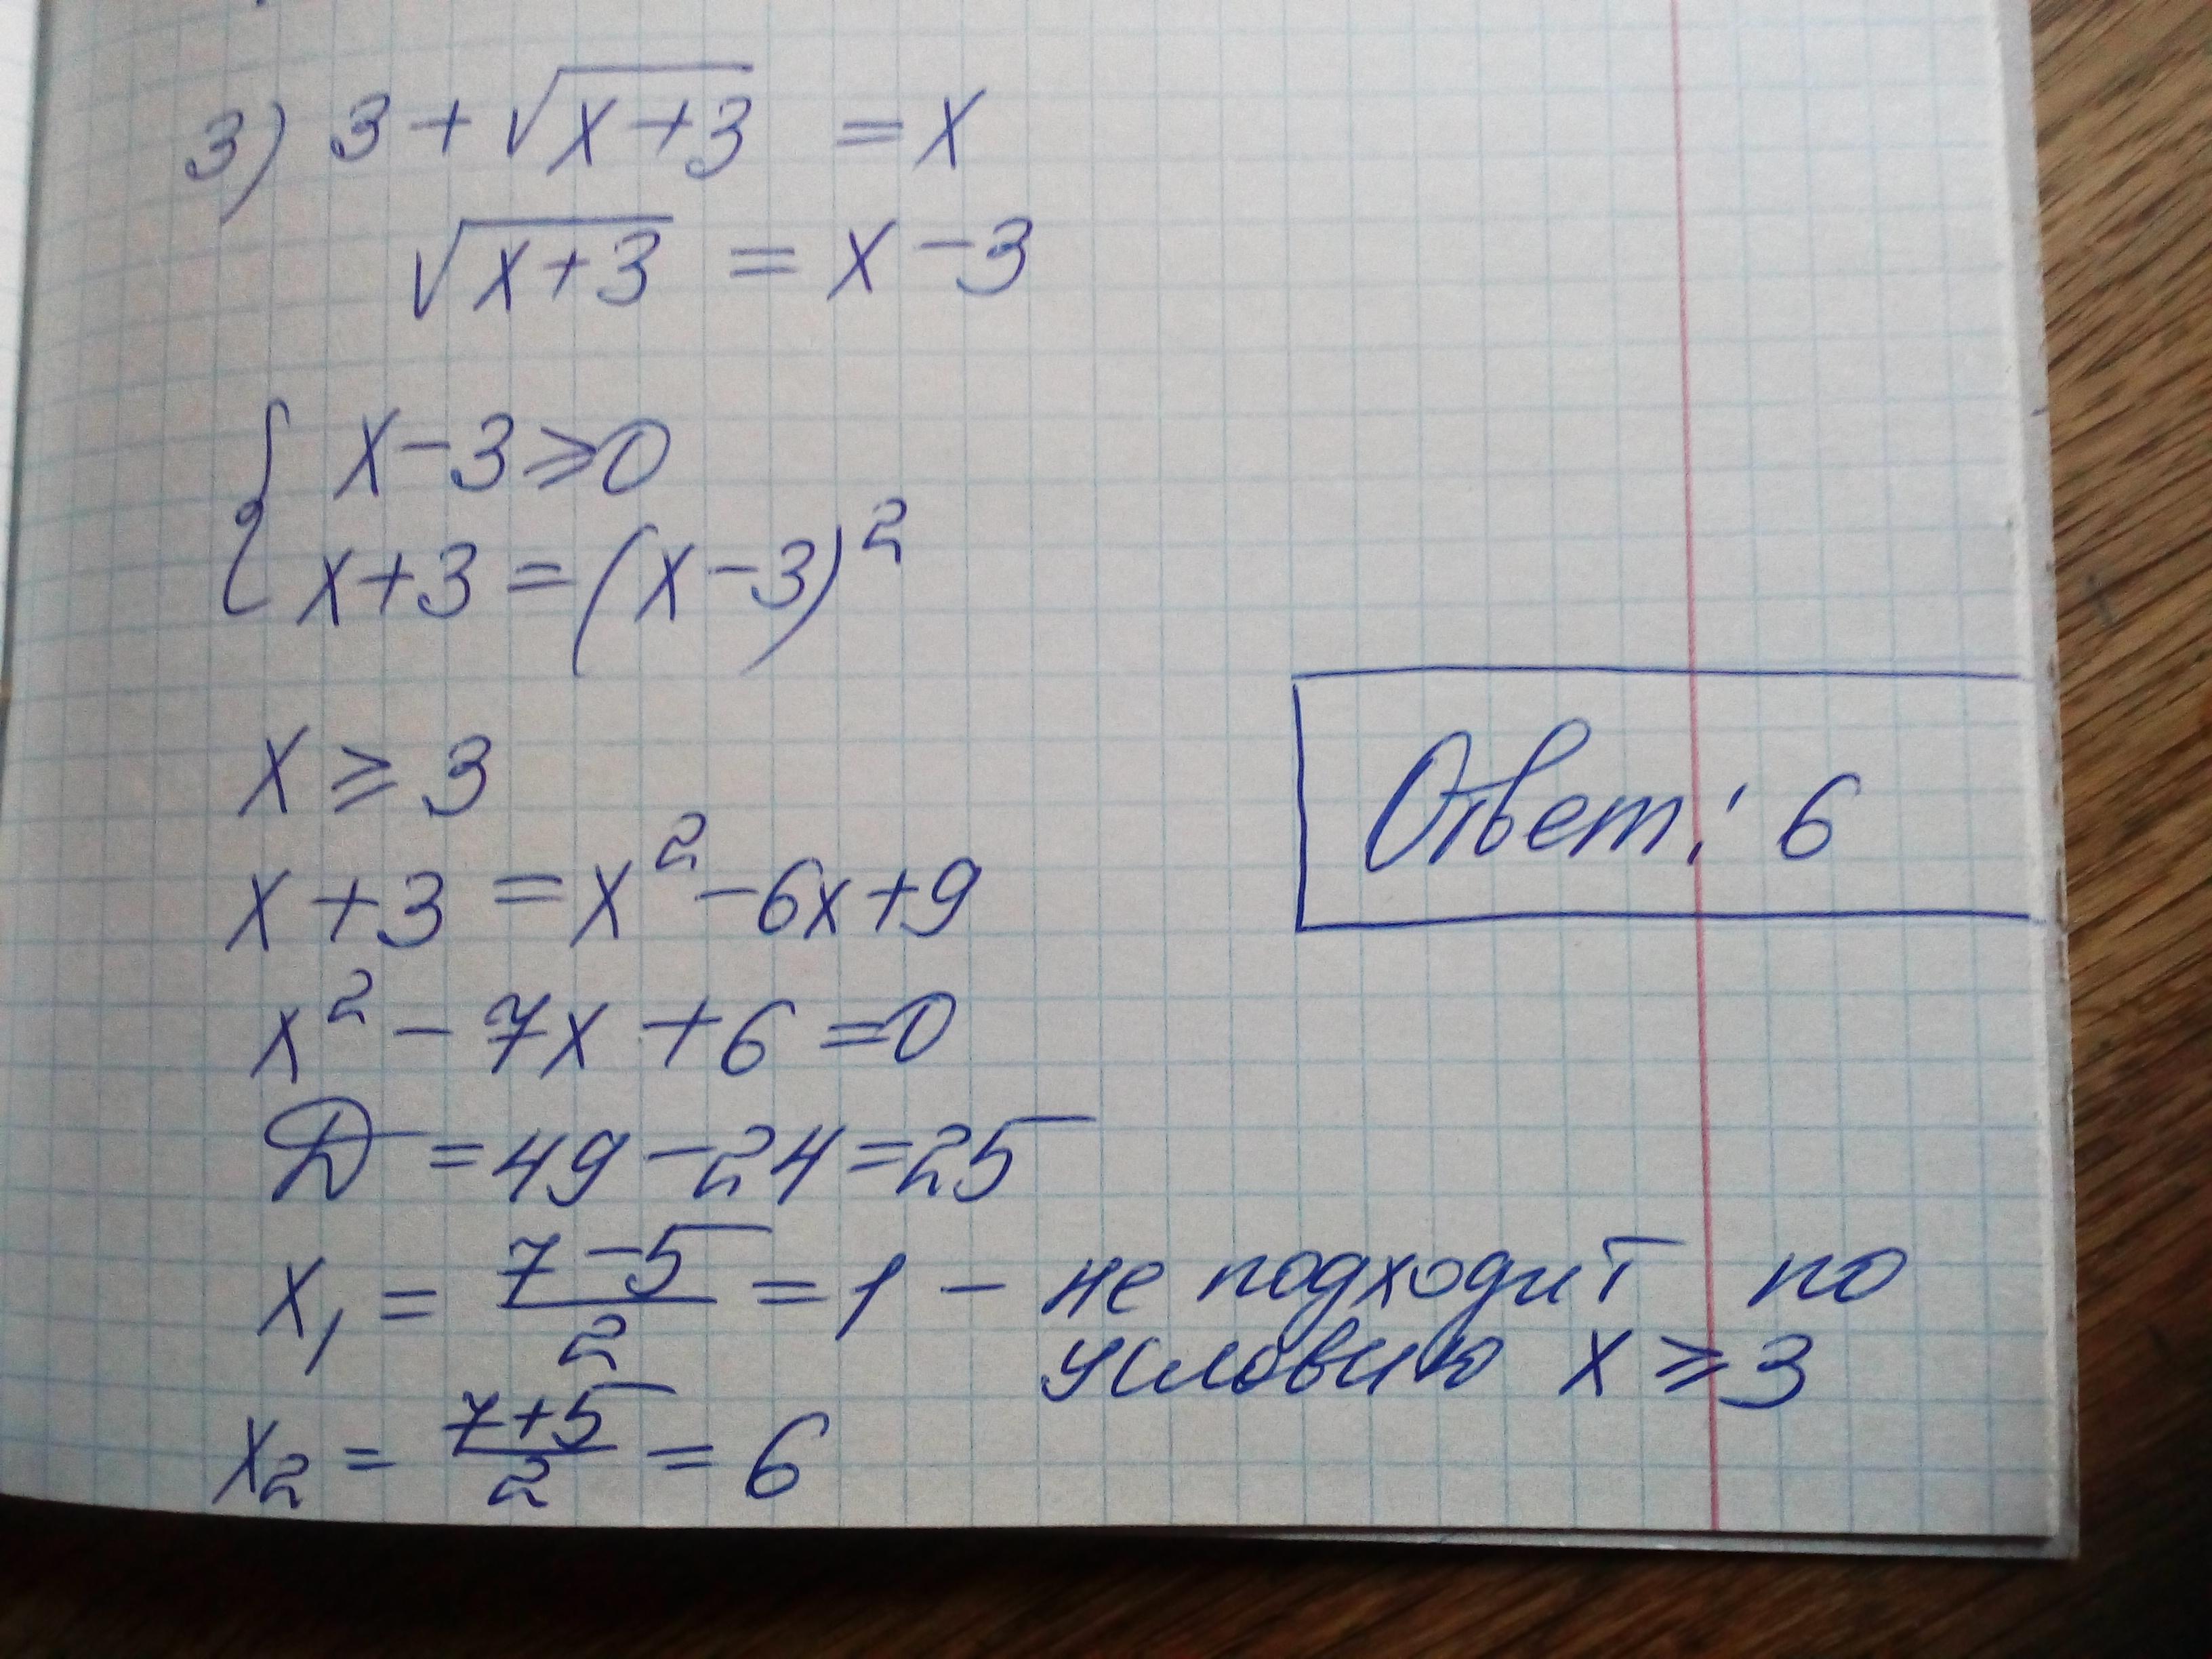 3) 3 + √(x+3) = x
√(x+3) = x - 3
{ x - 3 ⩾ 0
x + 3 = (x - 3)²
x ⩾ 3
x + 3 = x² - 6x + 9
x² - 7x + 6 = 0
D = 49 - 24 = 25
x₁ = (7 - 5)/2 = 1 - не подходит по
условию x ⩾ 3
x₂ = (7 + 5)/2 = 6
Ответ: 6